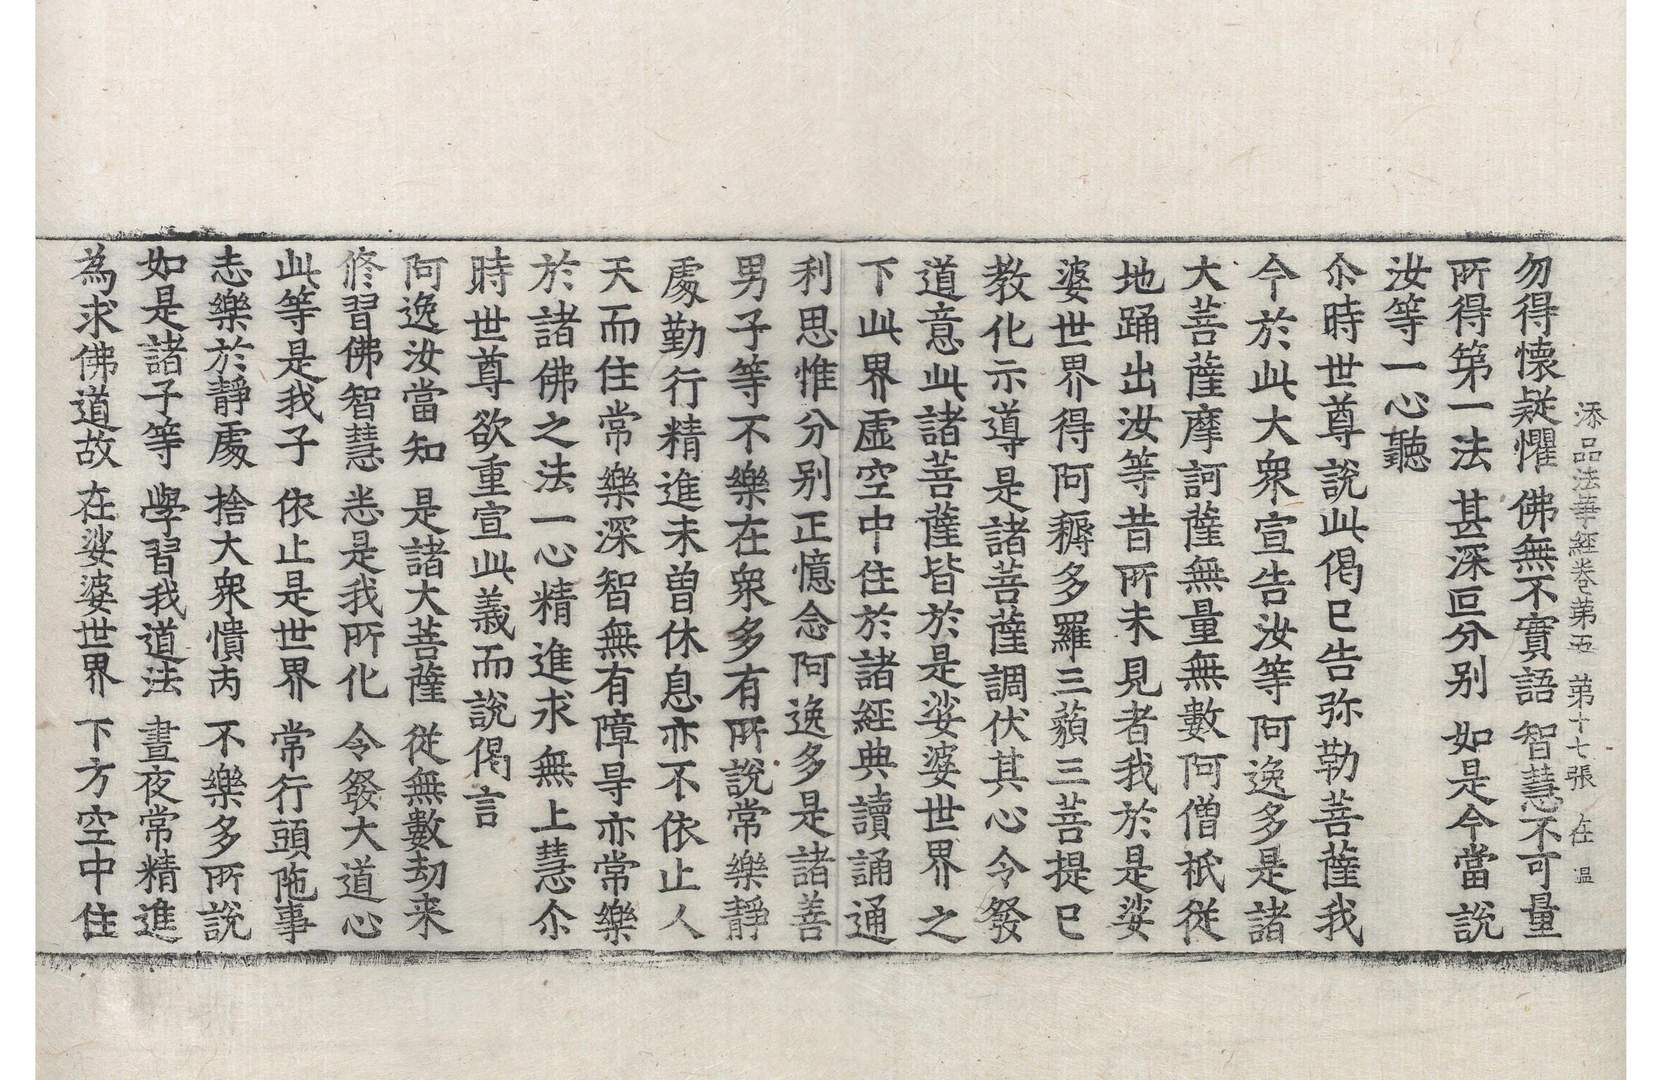 添品法華經卷第五 第十七張 在 温
勿得懷疑懼 佛無不實語 智慧不可量
所得第一法 甚深叵分別 如是今當說
汝等一心聽
尒時世尊說此偈已告弥勒菩薩我
今於此大衆宣告汝等阿逸多是諸
大菩薩摩訶薩無量無數阿僧祇從
地踊出汝等昔所未見者我於是娑
婆世界得阿耨多羅三藐三菩提已
教化示導是諸菩薩調伏其心令發
道意此諸菩薩皆於是娑婆世界之
下此界虛空中住於諸經典讀誦通
利思惟分別正憶念阿逸多是諸善
男子等不樂在衆多有所說常樂靜
處勤行精進未曾休息亦不依止人
天而住常樂深智無有障㝵亦常樂
於諸佛之法一心精進求無上慧尒
時世尊欲重宣此義而說偈言
阿逸汝當知 是諸大菩薩 從無數劫来
修習佛智慧 悉是我所化 令發大道心
此等是我子 依止是世界 常行頭陁事
志樂於靜處 捨大衆憒丙 不樂多所說
如是諸子等 學習我道法 晝夜常精進
為求佛道故 在娑婆世界 下方空中住